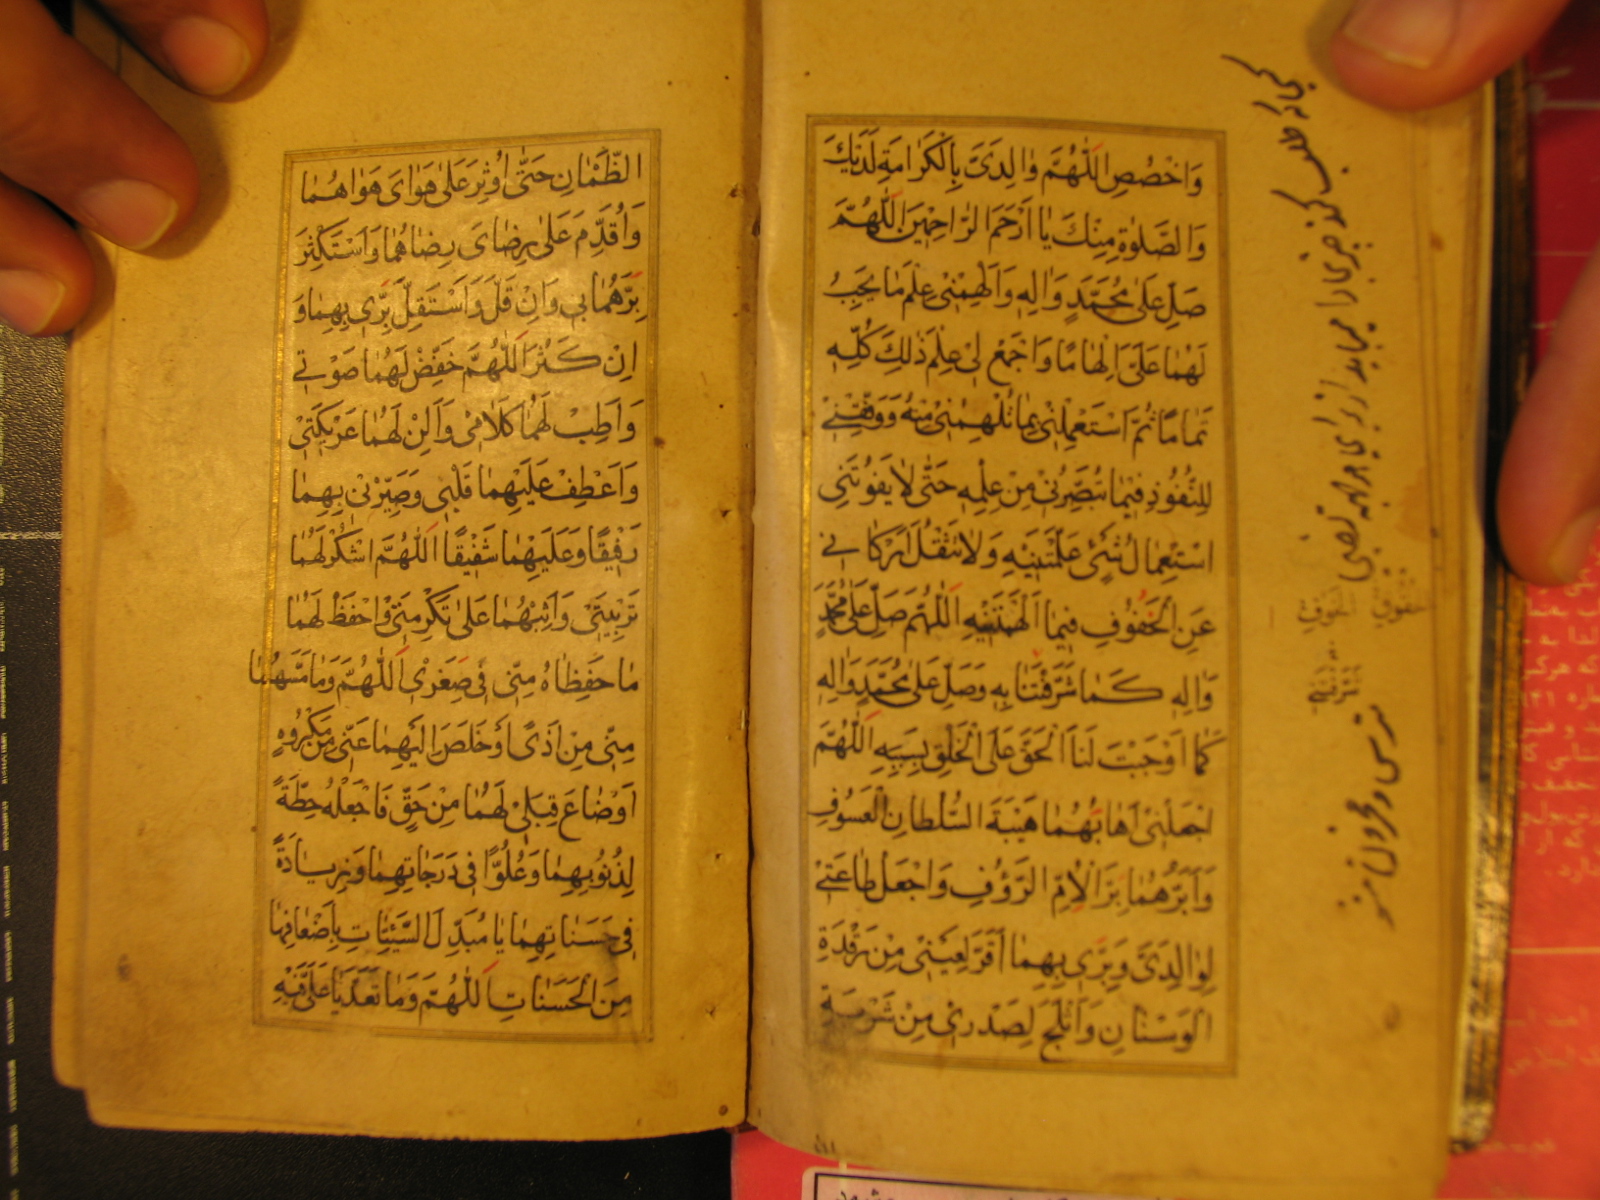 وَاخْصُصِ اللّٰهُمَّ وٰالِدَيَّ بِالْكَرٰامَةِ لَدَيْكَ
وَالصَّلٰوةِ مِنْكَ يٰا اَرْحَمَ الرّٰاحِمٖينَ اَللّٰهُمَّ
صَلِّ عَلٰى مُحَمَّدٍ وَاٰلِهٖ وَاَلْهِمْنٖى عِلْمَ مٰا يَجِبُ
لَهُمٰا عَلَيَّ اِلْهٰامًا وَاجْمَعْ لٖى عِلْمَ ذٰلِكَ كُلِّهٖ
تَمٰامًا ثُمَّ اسْتَعْمِلْنٖى بِمٰا تُلْهِمُنٖى مِنْهُ وَوَفِّقْنٖى
لِلنُّفُوذِ فٖيمٰا تُبَصِّرُنٖى مِنْ عِلْمِهٖ حَتّٰى لٰا يَفُوتَنٖى
اسْتِعْمٰالُ شَيْءٍ عَلَّمْتَنٖيهِ وَلٰا تَثْقُلَ اَرْكٰانٖى
عَنِ الْحُفُوفِ فٖيمٰا اَلْهَمْتَنٖيهِ اَللّٰهُمَّ صَلِّ عَلٰى مُحَمَّدٍ
وَاٰلِهٖ كَمٰا شَرَّفْتَنٰا بِهٖ وَصَلِّ عَلٰى مُحَمَّدٍ وَاٰلِهٖ
كَمٰا اَوْجَبْتَ لَنَا الْحَقَّ عَلَى الْخَلْقِ بِسَبَبِهٖ اَللّٰهُمَّ
اجْعَلْنٖى اَهٰابُهُمٰا هَيْبَةَ السُّلْطٰانِ الْعَسُوفِ
وَاَبَرُّهُمٰا بِرَّ الْاُمِّ الرَّؤُفِ وَاجْعَلْ طٰاعَتٖى
لِوٰالِدَيَّ وَبِرّٖى بِهِمٰا اَقَرَّ لِعَيْنٖى مِنْ رَقْدَةِ
الْوَسْنٰانِ وَاَثْلَجَ لِصَدْرٖى مِنْ شَرْبَةِ
الظَّمْاٰنِ حَتّٰى اُوثِرَ عَلٰى هَوٰايَ هَوٰاهُمٰا
وَاُقَدِّمَ عَلٰى رِضٰايَ رِضٰاهُمٰا وَاَسْتَكْثِرَ
بِرَّهُمٰا بٖى وَاِنْ قَلَّ وَاَسْتَقِلَّ بِرّٖى بِهِمٰا وَ
اِنْ كَثُرَ اَللّٰهُمَّ خَفِّضْ لَهُمٰا صَوْتٖى
وَاَطِبْ لَهُمٰا كَلٰامٖى وَاَلِنْ لَهُمٰا عَرٖيكَتٖى
وَاعْطِفْ عَلَيْهِمٰا قَلْبٖى وَصَيِّرْنٖى بِهِمٰا
رَفٖيقًا وَعَلَيْهِمٰا شَفٖيقًا اَللّٰهُمَّ اشْكُرْ لَهُمٰا
تَرْبِيَتٖى وَاَثِبْهُمٰا عَلٰى تَكْرِمَتٖى وَاحْفَظْ لَهُمٰا
مٰا حَفِظٰاهُ مِنّٖى فٖى صِغَرٖى اَللّٰهُمَّ وَمٰا مَسَّهُمٰا
مِنّٖى مِنْ اَذًى اَوْ خَلَصَ اِلَيْهِمٰا عَنّٖى مِنْ مَكْرُوهٍ
اَوْ ضٰاعَ قِبَلٖى لَهُمٰا مِنْ حَقٍّ فَاجْعَلْهُ حِطَّةً
لِذُنُوبِهِمٰا وَعُلُوًّا فٖى دَرَجٰاتِهِمٰا وَزِيٰادَةً
فٖى حَسَنٰاتِهِمٰا يٰا مُبَدِّلَ السَّيِّئٰاتِ بِاَضْعٰافِهٰا
مِنَ الْحَسَنٰاتِ اَللّٰهُمَّ وَمٰا تَعَدَّيٰا عَلَيَّ فٖيهِ